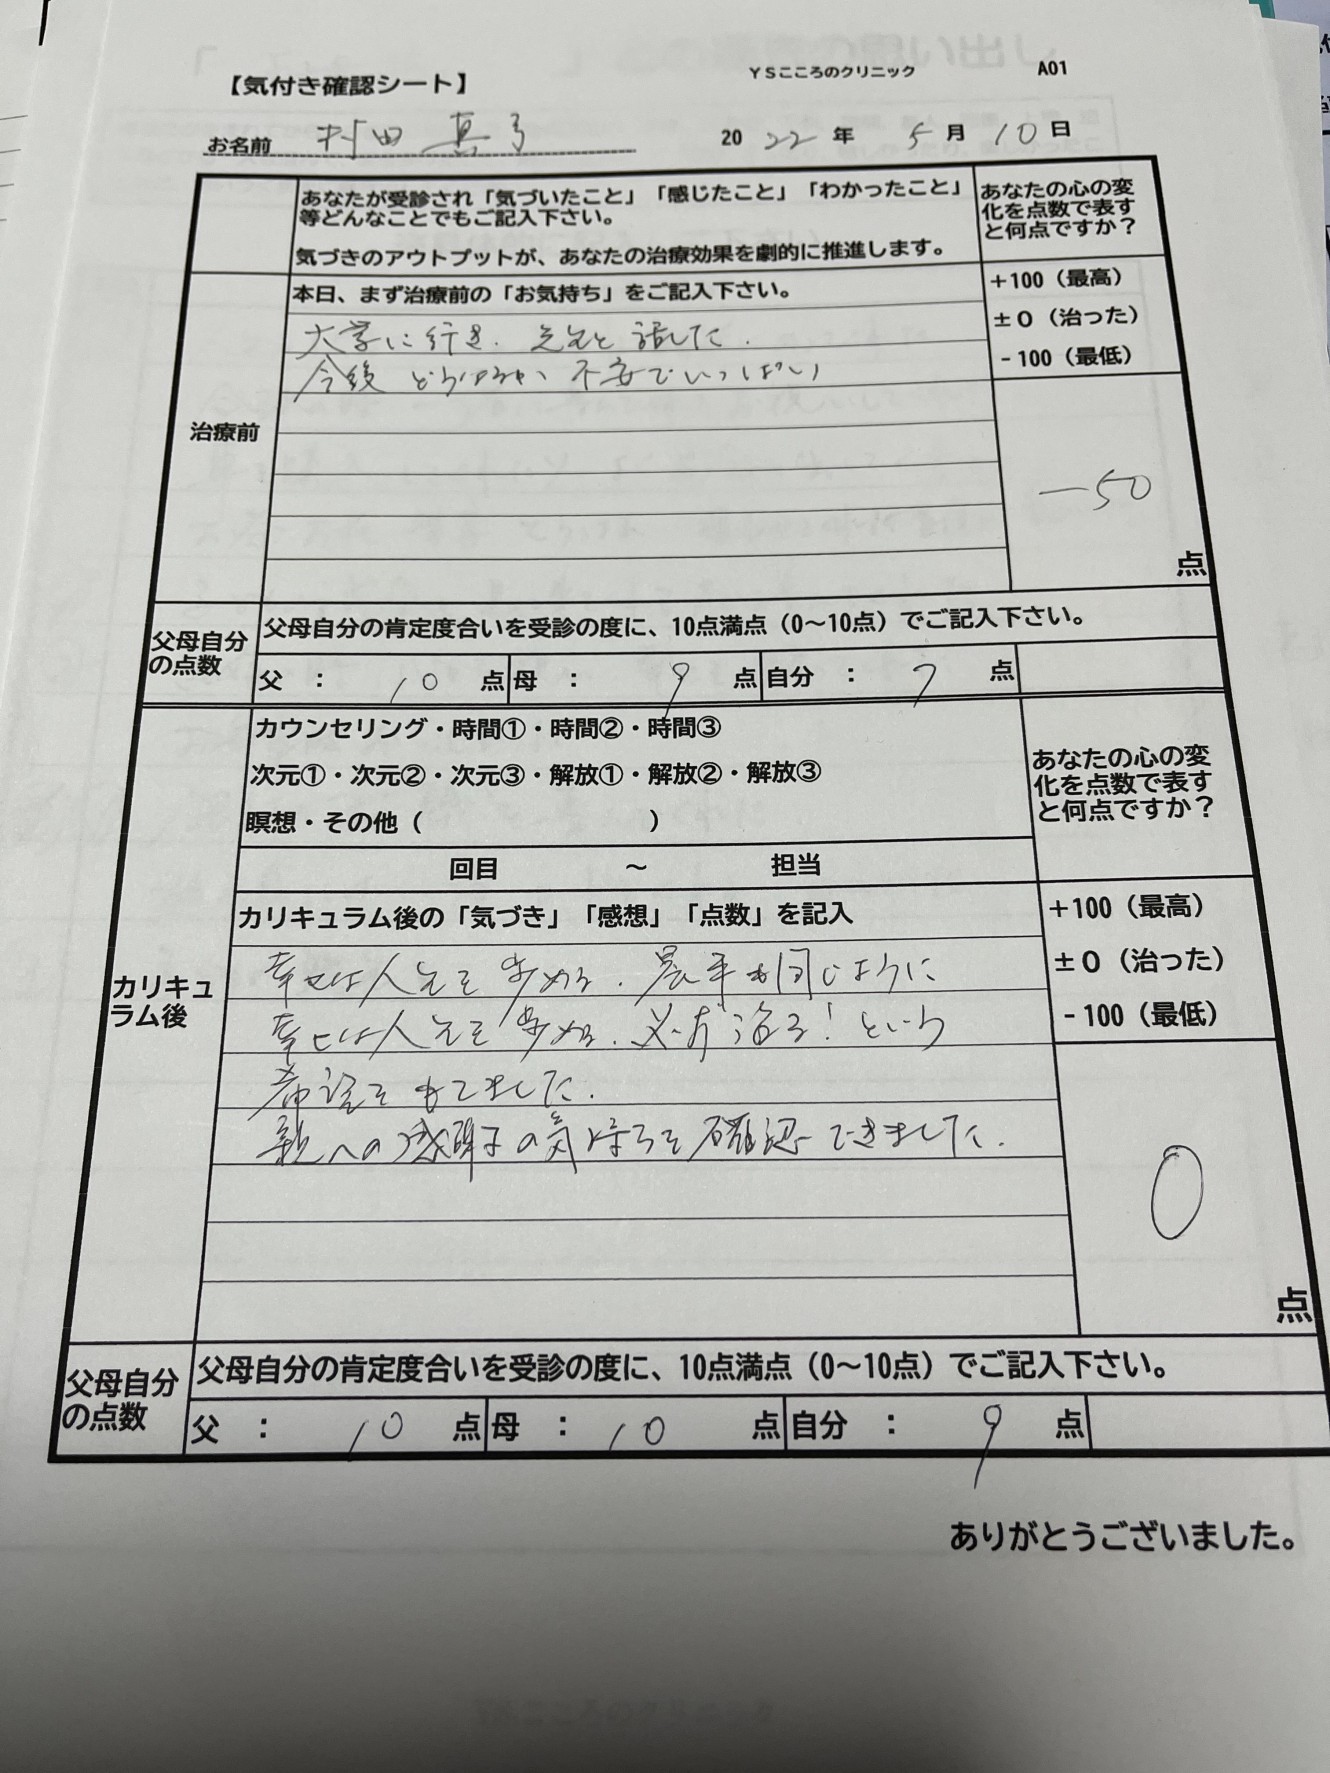 【気付き確認シート】
YSこころのクリニック
A01
お名前 村田 真弓
2022年 5月10日
あなたが受診され「気づいたこと」「感じたこと」「わかったこと」
等どんなことでもご記入下さい。
気づきのアウトプットが、あなたの治療効果を劇的に推進します。
あなたの心の変
化を点数で表す
と何点ですか?
治療前
本日、まず治療前の「お気持ち」をご記入下さい。
+100(最高)
±0(治った)
-100(最低)
大学に行き、先生と話した。
今後どうなるか 不安でいっぱい
-50
点
父母自分
の点数
父母自分の肯定度合いを受診の度に、10点満点(0〜10点)でご記入下さい。
父 : 10 点 母 : 9 点 自分 : 7 点
カリキュ
ラム後
カウンセリング・時間①・時間②・時間③
次元①・次元②・次元③・解放①・解放②・解放③
瞑想・その他( )
回目 〜 担当
あなたの心の変
化を点数で表す
と何点ですか?
カリキュラム後の「気づき」「感想」「点数」を記入
+100(最高)
±0(治った)
-100(最低)
幸せは人生を歩める。 も同じように
幸せは人生を歩める。必ず治る!という
希望をもてました。
親への感謝の気持ちを確認できました。
0
点
父母自分
の点数
父母自分の肯定度合いを受診の度に、10点満点(0〜10点)でご記入下さい。
父 : 10 点 母 : 10 点 自分 : 9 点
ありがとうございました。